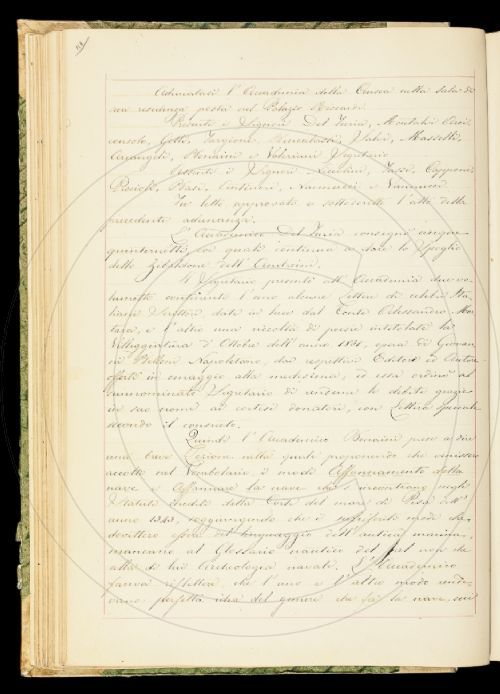 Adunatasi l'Accademia della Crusca nella Sala di
sua residenza posta nel Palazzo Riccardi
Presenti i Signori Del Furia, Montalvi Arci
consolo, Gotti, Targioni, Valeri, Masselli,
Arcangeli, Bonaini e Valeriani Segretario
Assenti i Signori Niccolini, Tassi, Capponi,
Puccioli, Basi, Nannucci e Vannucci.
Fu letto approvato e sottoscritto l'atto della
precedente adunanza.
L'Accademico Del Furia consegnò cinque
quinternetti, coi quali continua a dare lo Spoglio
dello Zibaldone dell'Andreini.
Il Segretario presentò all'Accademia due vo-
lumetti contenente l'uno alcune Lettere di celebri Ita-
liani Scrittori, date in luce dal Conte Alessandro Mor
tara, e l'altro una raccolta di poesie intitolata la
Villeggiatura d'Ottobre dell'anno 1841, opera di Giovan
ni Napoletano, dai rispettivi Editore ed Autore
offerti in omaggio alla medesima, ed essa ordinò al
summominato Segretario di renderne le debite grazie
in suo nome ai cortesi donatori, con Lettera speciale
secondo il consueto.
Quindi l'Accademico Bonaini prese a dire
una breve Lezione nella quale proponendo che venissero
accolte nel Vocabolario, i modi Afforcamento della
nave e Afforcare la nave che s'incontrano negli
Statuti inediti della Corte del mare di Pisa dell'
anno 1343, soggiungendo che i modi che
dovettero esser del linguaggio dell'antica marina,
mancano al Glossario nautico del Jal non che
alla di lui Archeologia navale. L'Accademico
faceva riflettere, che l'uno e l'altro modo rende-
vano perfetta idea del genere che fa la nave, sui